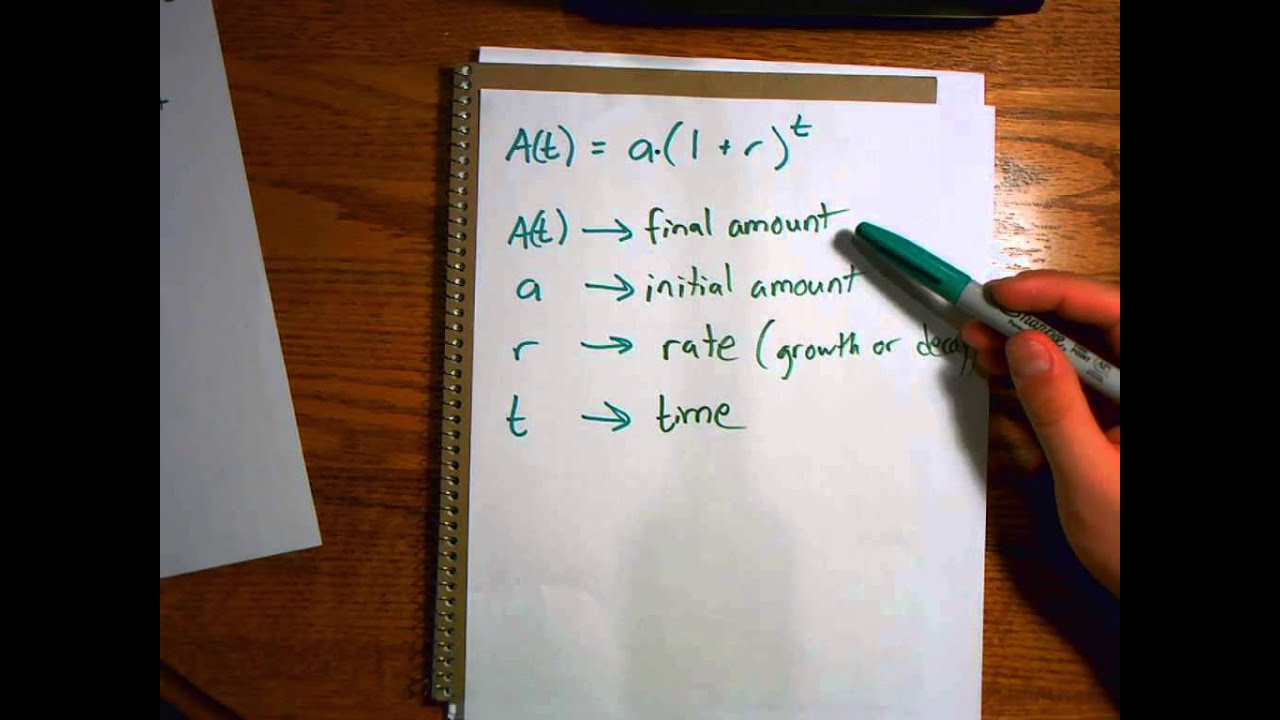 A(t) = a·(1 + r)^t
A(t) → final amount
a → initial amount
r → rate (growth or decay)
t → time
Sharpie